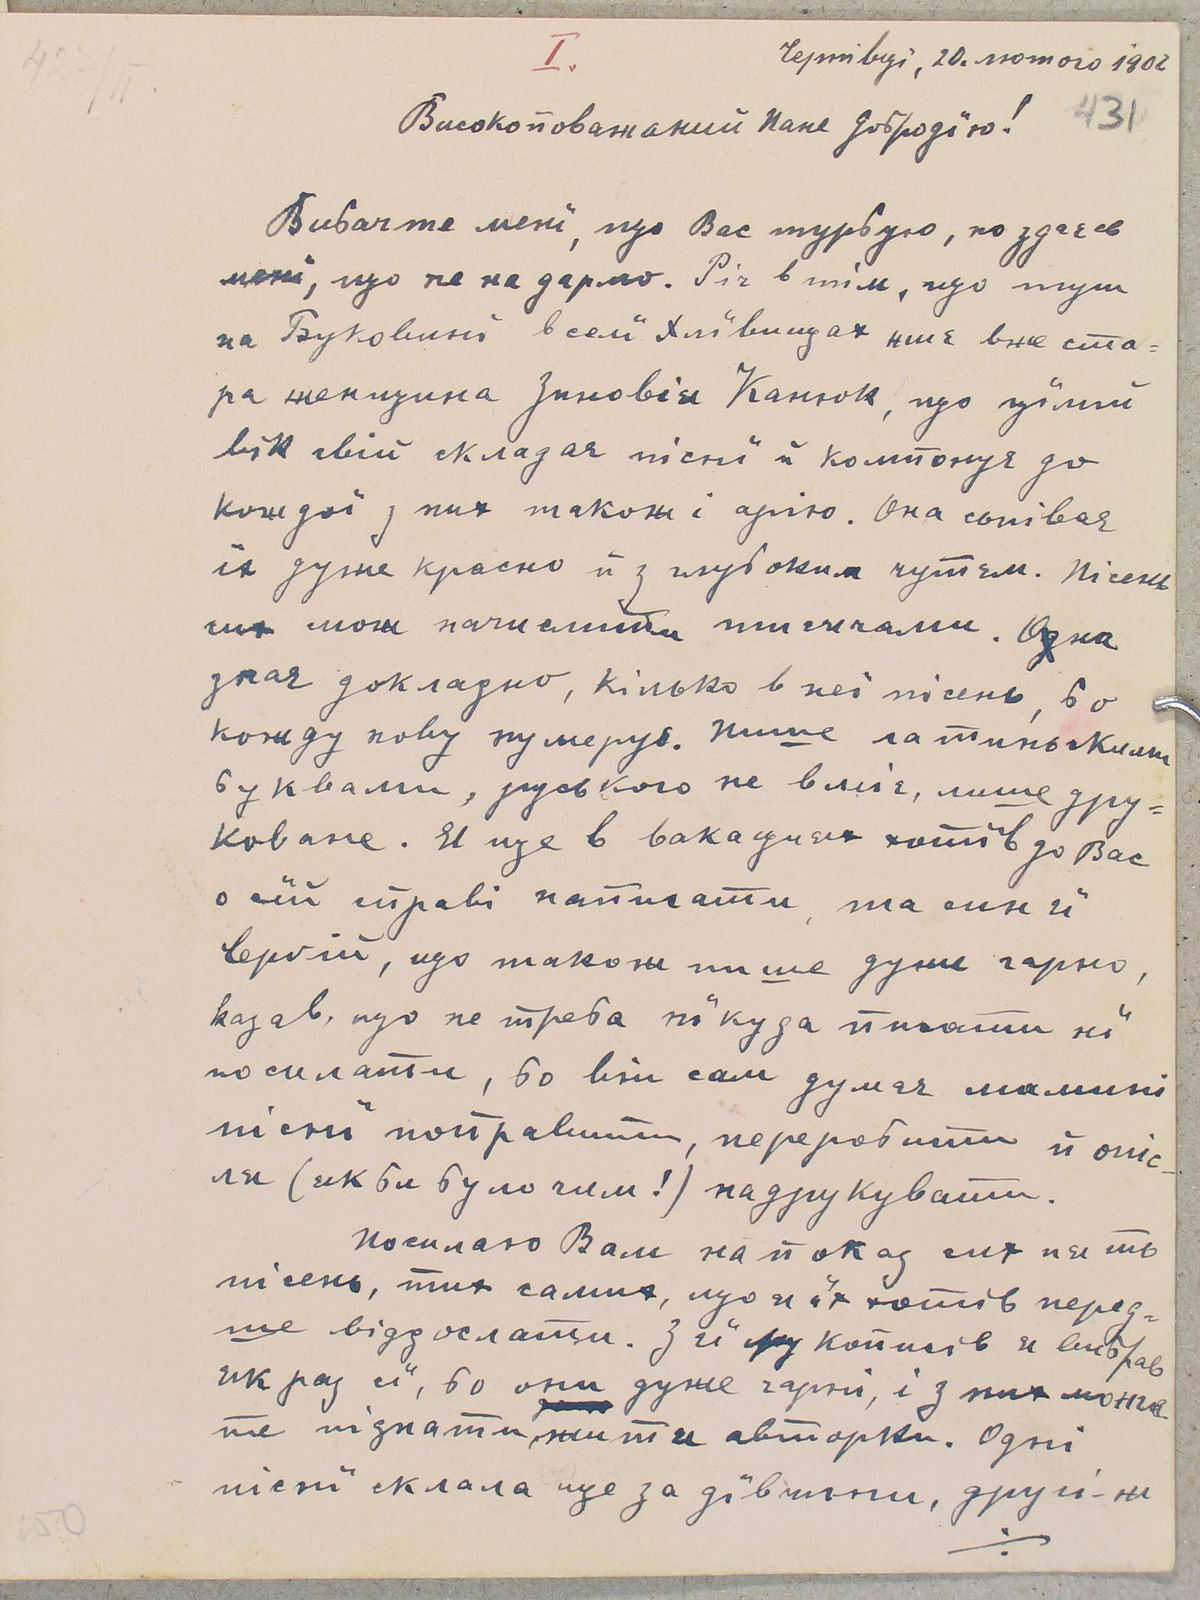 I.
Чернівцї, 20. лютого 1902
431
Високоповажаний Пане Добродїю!
Вибачте менї, що Вас турбую, но здаєсь
менї, що не на дармо. Річ в тім, що тут
на Буковинї в селї Хлївищах жиє вже ста-
ра женщина Зиновія Канюк, що цїлий
вік свій складає піснї й компонує до
кождої з них також і арію. Она співає
їх дуже красно й з глубоким чутєм. Пісень
сих мож начислити тисячами. Она
знає докладно, кілько в неї пісень, бо
кожду нову нумерує. Пише латиньскими
буквами, руського не вміє, лише дру-
коване. Я ще в вакациях хотїв до Вас
о сїй справі написати, та син її
Сергій, що також пише дуже гарно,
казав, що не треба нїкуда писати нї
посилати, бо він сам думає мамині
піснї поправити, переробити й опіс-
ля (як би було чим!) надрукувати.
Посилаю Вам на показ сих пять
пісень, тих самих, що я їх хотїв перед-
ше відослати. З її рукописів я вибрав
як раз сї, бо они дуже гарні, і з них можна
те пізнати житя авторки. Одні
піснї склала ще за дївчини, другі-ж